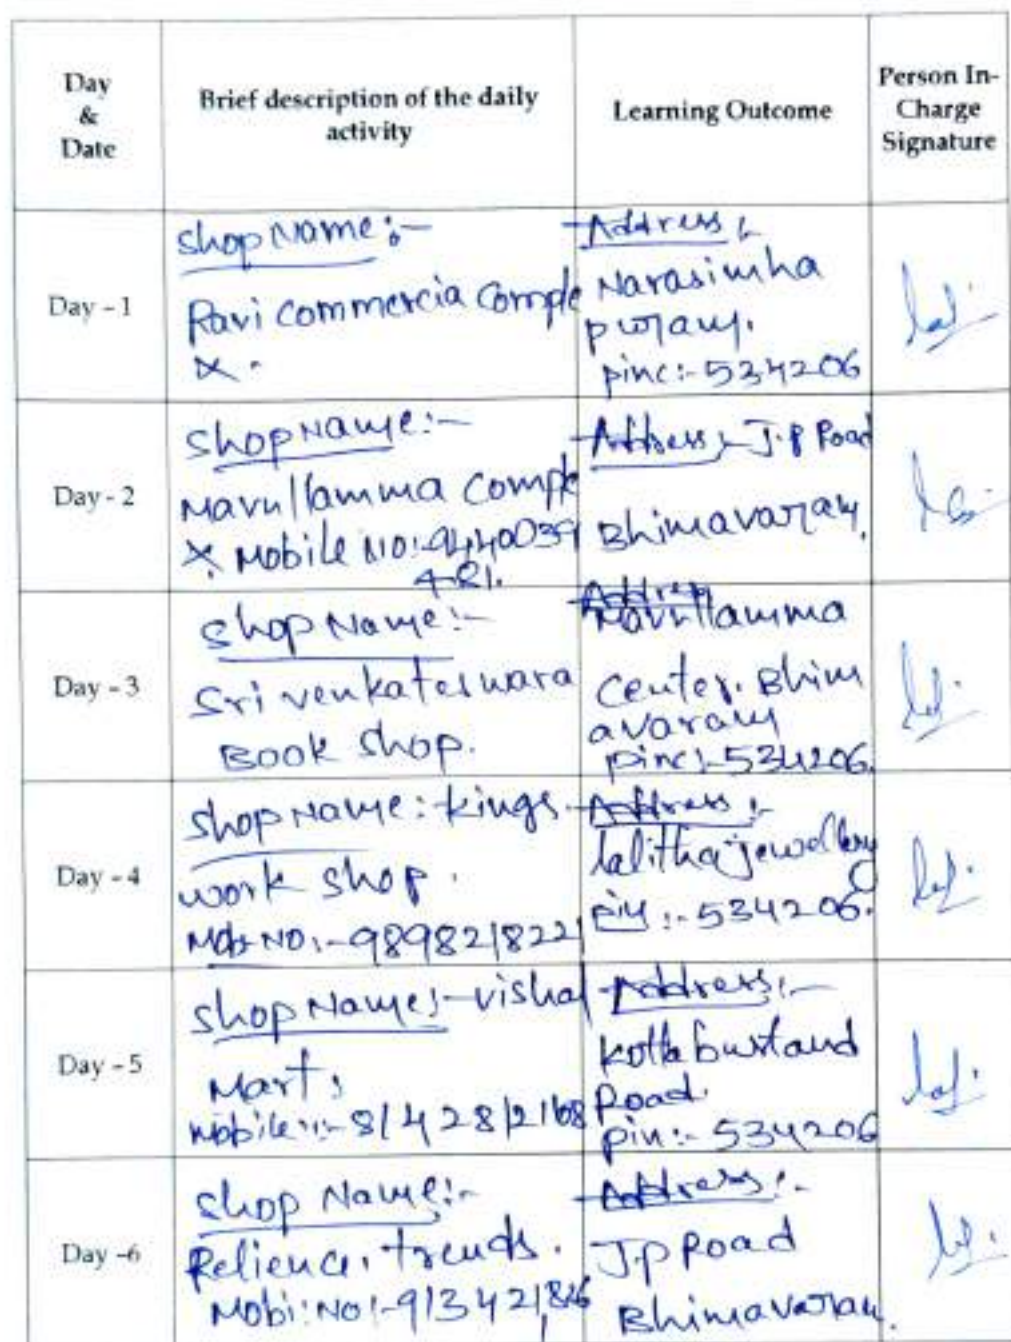 Day
&
Date
Brief description of the daily
activity
Learning Outcome
Person In-
Charge
Signature
Day - 1
Shop Name:-
Ravi commercia comple
x.
Address:-
Narasimha
puram.
pinc:- 534206
Day - 2
Shop Name:-
Mavullamma comple
x. Mobile No:-9440039
421.
Address:- J.P Road
Bhimavaram.
Day - 3
Shop Name:-
Sri venkateswara
Book shop.
Address
Mavullamma
center. Bhim
avaram
pinc:-534206.
Day - 4
Shop Name: kings
work shop.
Mob No:-9898218221
Address:-
lalitha jewellery
pin:-534206.
Day - 5
Shop Name:-vishal
Mart:
Mobile:-8142812168
Address:-
kotta bustand
Road.
pin:-534206
Day -6
Shop Name:-
Relience. trends.
Mobi:No:-913421826
Address:-
J.p Road
Bhimavaram.